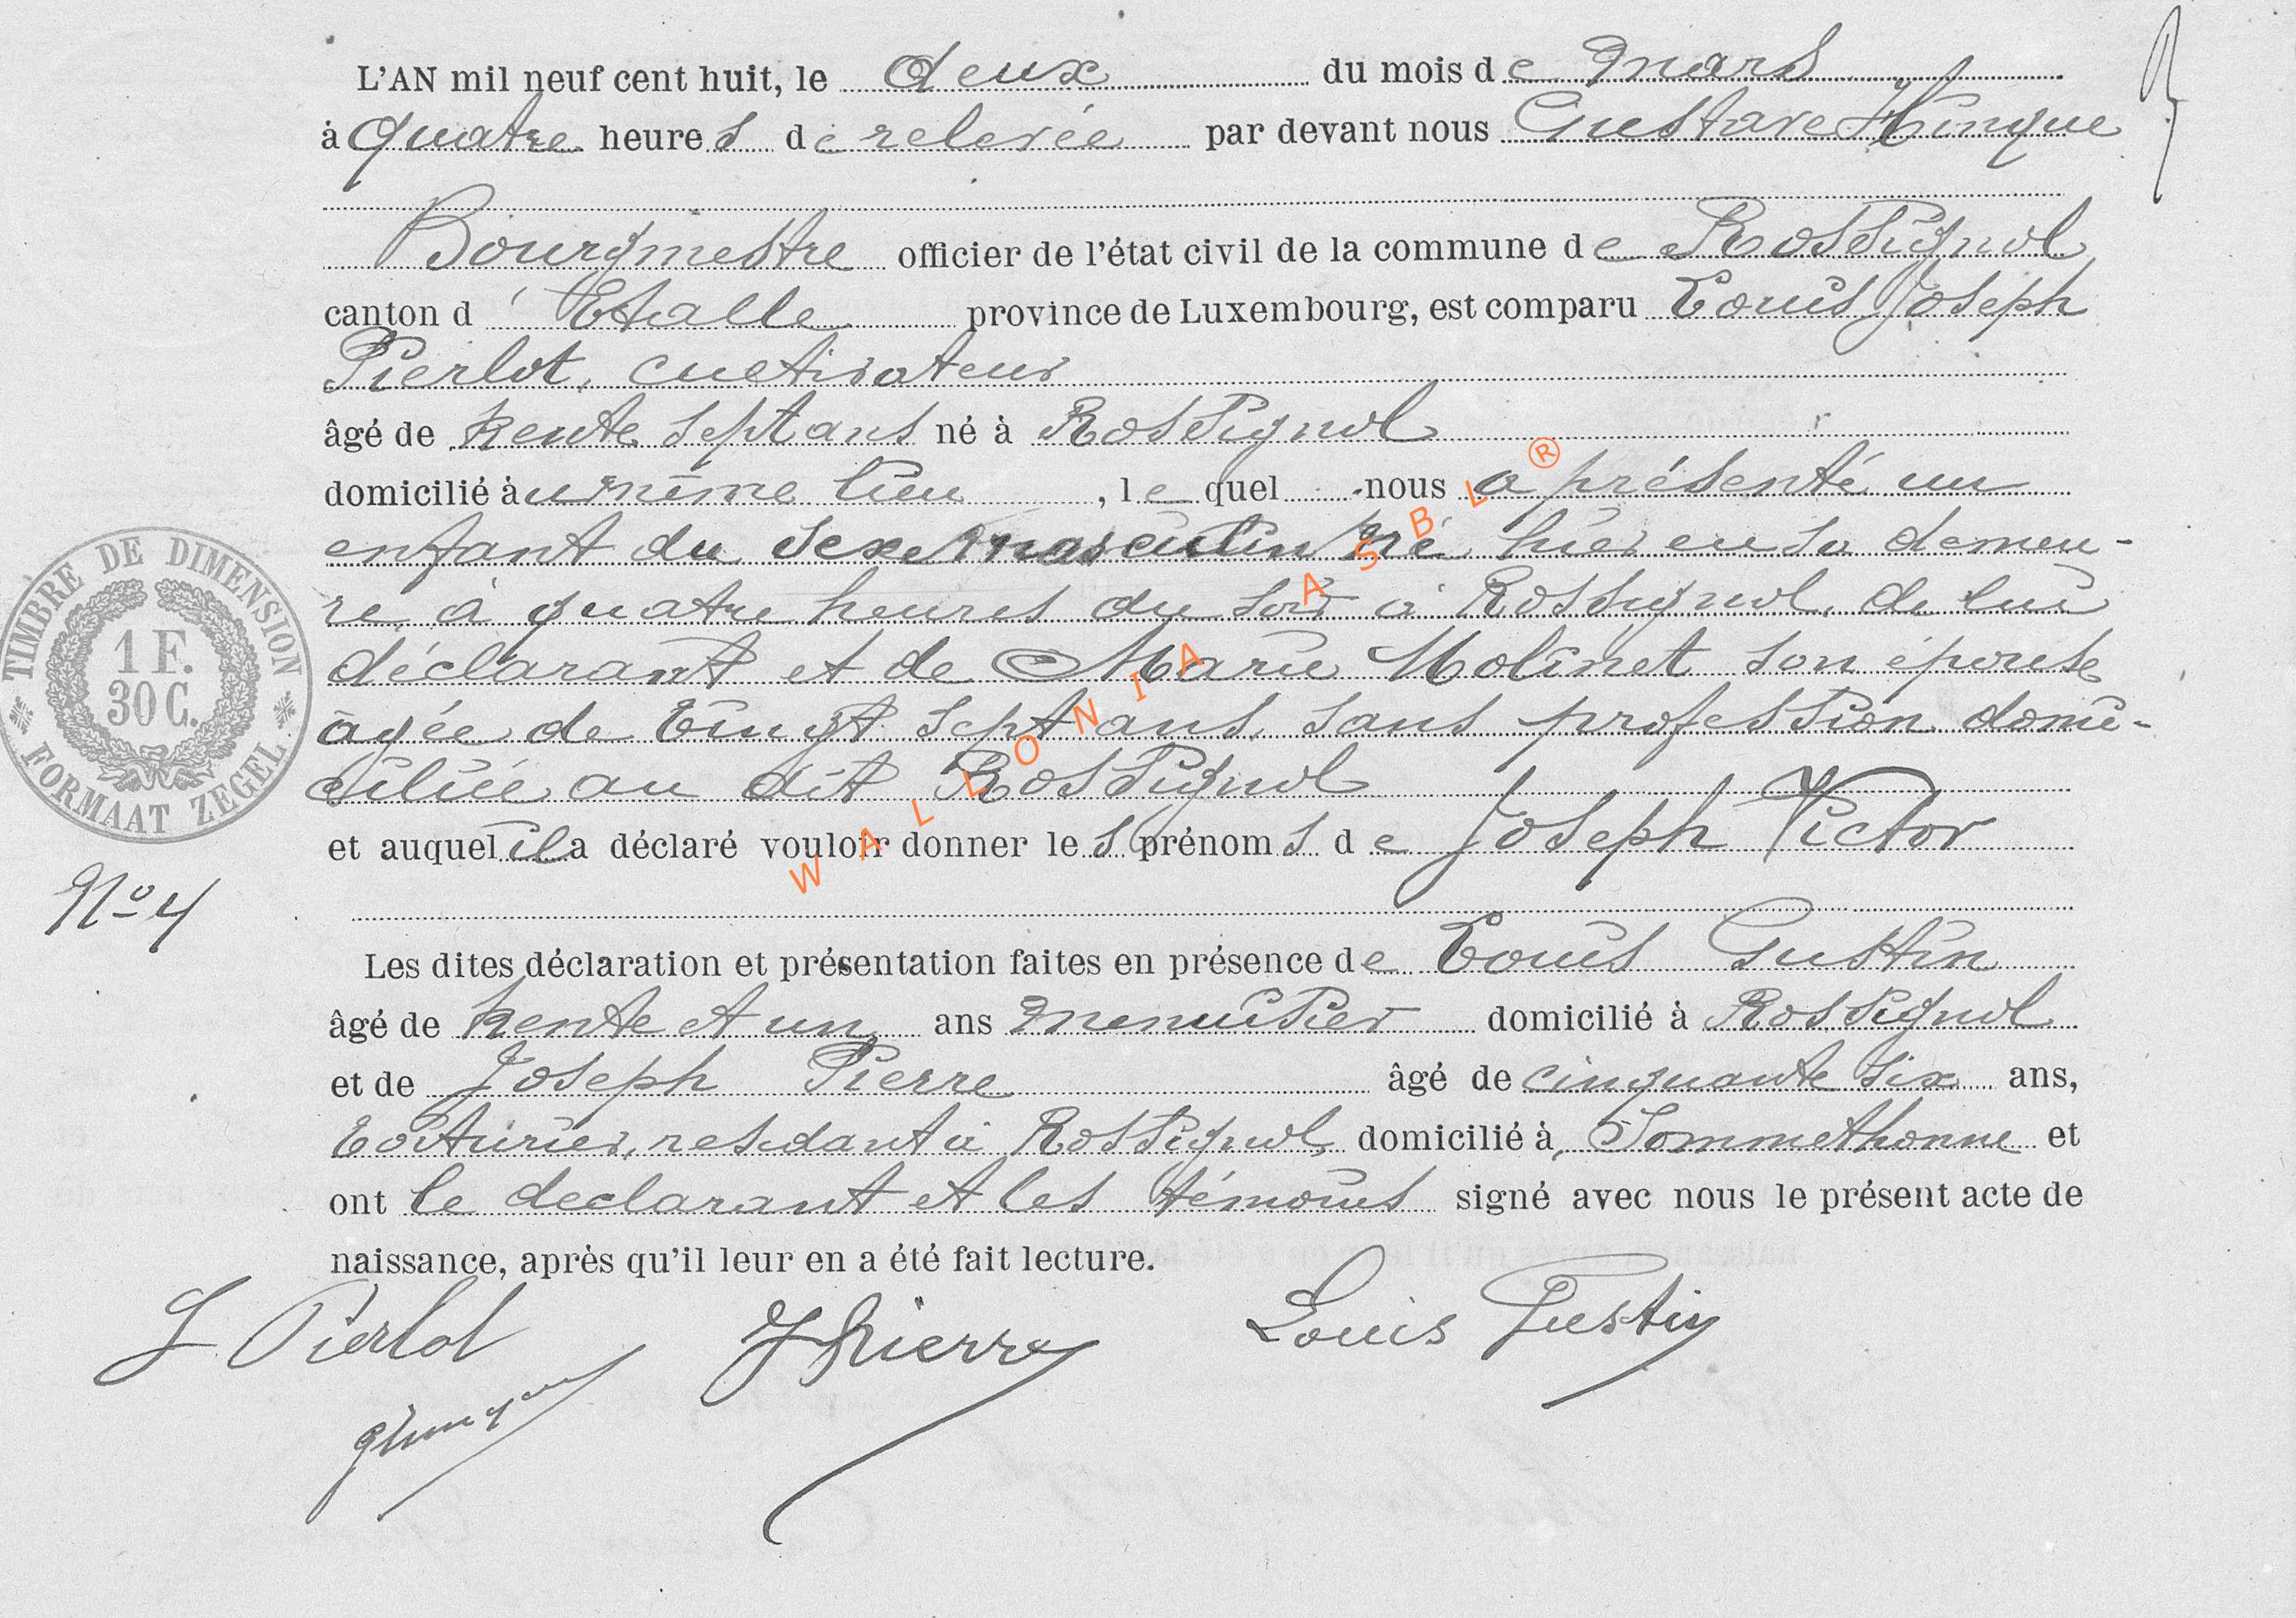 L'AN mil neuf cent huit, le deux du mois de mars
à quatre heures de relevée par devant nous Gustave Hinque
Bourgmestre officier de l'état civil de la commune de Rossignol
canton d'Etalle province de Luxembourg, est comparu Louis Joseph
Pierlot, cultivateur
âgé de trente sept ans né à Rossignol
domicilié au même lieu, lequel nous a présenté un
enfant du sexe masculin né hier en sa demeu-
re à quatre heures du soir à Rossignol, de lui
déclarant et de Marie Molinet son épouse
agée de vingt sept ans, sans profession domi-
ciliée au dit Rossignol
et auquel il a déclaré vouloir donner les prénoms de Joseph Victor
Les dites déclaration et présentation faites en présence de Louis Gustin
âgé de trente et un ans menuisier domicilié à Rossignol
et de Joseph Pierre âgé de cinquante six ans,
voiturier, residant à Rossignol, domicilié à Sommethonne et
ont le declarant et les témoins signé avec nous le présent acte de
naissance, après qu'il leur en a été fait lecture.
L Pierlot J Pierre Louis Gustin
TIMBRE DE DIMENSION
1 F.
30 C.
FORMAAT ZEGEL
No 4
WALLONIA ASBL ®